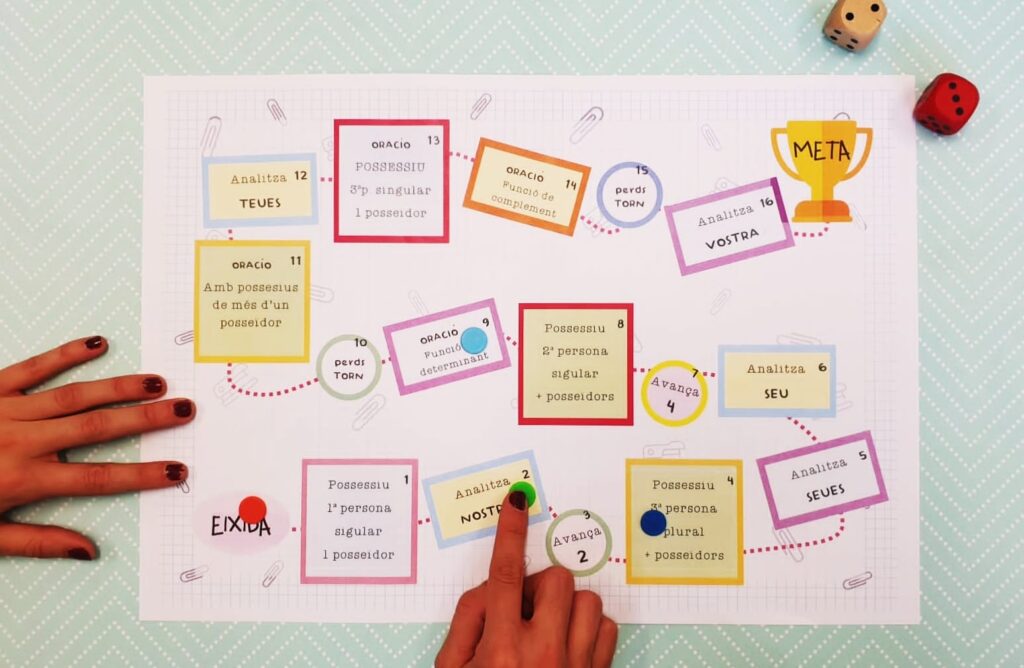 EIXIDA
1
Possessiu
1ª persona
sigular
1 posseidor
2
Analitza
3
Avança
2
4
Possessiu
3ª persona
plural
+ posseidors
5
Analitza
SEUES
6
Analitza
SEU
7
Avança
4
8
Possessiu
2ª persona
sigular
+ posseidors
9
ORACIÓ
Funció
determinant
10
perds
TORN
11
ORACIÓ
Amb possesius
de més d'un
posseidor
12
Analitza
TEUES
13
ORACIÓ
POSSESSIU
3ªp singular
1 posseidor
14
ORACIÓ
Funció de
complement
15
perds
TORN
16
Analitza
VOSTRA
META